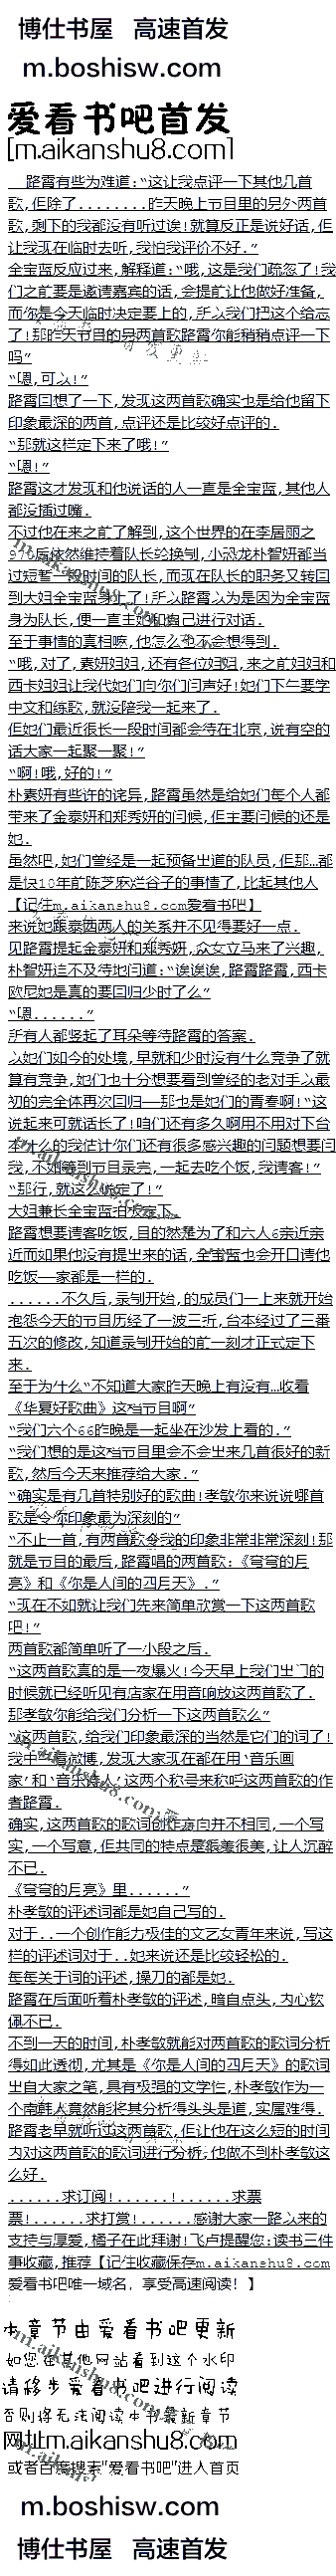 博仕书屋 高速首发
m.boshisw.com
爱看书吧首发
[m.aikanshu8.com]
路霄有些为难道:“这让我点评一下其他几首
歌,但除了........昨天晚上节目里的另外两首
歌,剩下的我都没有听过诶!就算反正是说好话,但
让我现在临时去听,我怕我评价不好.”
全宝蓝反应过来,解释道:“哦,这是我们疏忽了!我
们之前要是邀请嘉宾的话,会提前让他做好准备,
而你是今天临时决定要上的,所以我们把这个给忘
了!那昨天节目的另两首歌路霄你能稍稍点评一下
吗”
“嗯,可以!”
路霄回想了一下,发现这两首歌确实也是给他留下
印象最深的两首,点评还是比较好点评的.
“那就这样定下来了哦!”
“嗯!”
路霄这才发现和他说话的人一直是全宝蓝,其他人
都没插过嘴.
不过他在来之前了解到,这个世界的在李居丽之
后,依然维持着队长轮换制,小恐龙朴智妍都当
过短暂一段时间的队长,而现在队长的职务又转回
到大妞全宝蓝身上了!所以路霄以为是因为全宝蓝
身为队长,便一直主她和自己进行对话.
至于事情的真相嘛,他怎么也不会想得到.
“哦,对了,素妍妞妞,还有各位妞妞,来之前妞妞和
西卡妞妞让我代她们向你们问声好!她们下午要学
中文和练歌,就没陪我一起来了.
但她们最近很长一段时间都会待在北京,说有空的
话大家一起聚一聚!”
“啊!哦,好的!”
朴素妍有些许的诧异,路霄虽然是给她们每个人都
带来了金泰妍和郑秀妍的问候,但主要问候的还是
她.
虽然吧,她们曾经是一起预备出道的队员,但那…都
是快10年前陈芝麻烂谷子的事情了,比起其他人
【记住m.aikanshu8.com爱看书吧】
来说她跟泰西两人的关系并不见得要好一点.
见路霄提起金泰妍和郑秀妍,众女立马来了兴趣,
朴智妍迫不及待地问道:“诶诶诶,路霄路霄,西卡
欧尼她是真的要回归少时了么”
“嗯......”
所有人都竖起了耳朵等待路霄的答案.
以她们如今的处境,早就和少时没有什么竞争了就
算有竞争,她们也十分想要看到曾经的老对手以最
初的完全体再次回归——那也是她们的青春啊!“这
说起来可就话长了!咱们还有多久啊用不用对下台
本什么的我估计你们还有很多感兴趣的问题想要问
我,不如等到节目录完,一起去吃个饭,我请客!”
“那行,就这么约定了!”
大妞兼长全宝蓝拍板定下.
路霄想要请客吃饭,目的然是为了和六人6亲近亲
近而如果他没有提出来的话,全宝蓝也会开口请他
吃饭——家都是一样的.
......不久后,录制开始,的成员们一上来就开始
抱怨今天的节目历经了一波三折,台本经过了三番
五次的修改,知道录制开始的前一刻才正式定下
来.
至于为什么“不知道大家昨天晚上有没有…收看
《华夏好歌曲》这档节目啊”
“我们六个66昨晚是一起坐在沙发上看的.”
“我们想的是这档节目里会不会出来几首很好的新
歌,然后今天来推荐给大家.”
“确实是有几首特别好的歌曲!孝敏你来说说哪首
歌是令你印象最为深刻的”
“不止一首,有两首歌令我的印象非常非常深刻!那
就是节目的最后,路霄唱的两首歌:《弯弯的月
亮》和《你是人间的四月天》.”
“现在不如就让我们先来简单欣赏一下这两首歌
吧!”
两首歌都简单听了一小段之后.
“这两首歌真的是一夜爆火!今天早上我们出门的
时候就已经听见有店家在用音响放这两首歌了.
那孝敏你能给我们分析一下这两首歌么”
“这两首歌,给我们印象最深的当然是它们的词了!
我中午看微博,发现大家现在都在用‘音乐画
家’和‘音乐诗人’这两个称号来称呼这两首歌的作
者路霄.
确实,这两首歌的歌词创作方向并不相同,一个写
实,一个写意,但共同的特点是很美很美,让人沉醉
不已.
《弯弯的月亮》里......”
朴孝敏的评述词都是她自己写的.
对于..一个创作能力极佳的文艺女青年来说,写这
样的评述词对于..她来说还是比较轻松的.
每每关于词的评述,操刀的都是她.
路霄在后面听着朴孝敏的评述,暗自点头,内心钦
佩不已.
不到一天的时间,朴孝敏就能对两首歌的歌词分析
得如此透彻,尤其是《你是人间的四月天》的歌词
出自大家之笔,具有极强的文学性,朴孝敏作为一
个南韩人竟然能将其分析得头头是道,实属难得.
路霄老早就听过这两首歌,但让他在这么短的时间
内对这两首歌的歌词进行分析,他做不到朴孝敏这
么好.
......求订阅!......!......求票
票!......求打赏!......感谢大家一路以来的
支持与厚爱,橘子在此拜谢!飞卢提醒您:读书三件
事收藏,推荐【记住收藏保存m.aikanshu8.com
爱看书吧唯一域名，享受高速阅读！】
本章节由爱看书吧更新
如您在其他网站看到这个水印
请移步爱看书吧进行阅读
否则将无法阅读本书最新章节
网址m.aikanshu8.com
或者百度搜素“爱看书吧”进入首页
m.boshisw.com
博仕书屋 高速首发